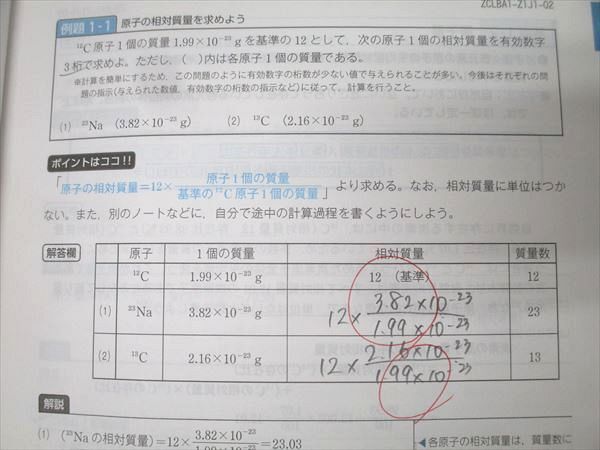 ZCLBA1-Z1J1-02
例題 1-1 原子の相対質量を求めよう
¹²C 原子 1 個の質量 1.99×10⁻²³ g を基準の 12 として，次の原子 1 個の相対質量を有効数字
3 桁で求めよ。ただし，( )内は各原子 1 個の質量である。
※計算を簡単にするため，この問題のように有効数字の桁数が少ない値で与えられることが多い。今後はそれぞれの問
題の指示(与えられた数値，有効数字の桁数の指示など)に従って，計算を行うこと。
(1) ²³Na (3.82×10⁻²³ g) (2) ¹³C (2.16×10⁻²³ g)
ポイントはココ!!
「原子の相対質量=12×原子 1 個の質量/基準の¹²C 原子 1 個の質量」より求める。なお，相対質量に単位はつか
ない。また，別のノートなどに，自分で途中の計算過程を書くようにしよう。
解答欄 原子 1 個の質量 相対質量 質量数
¹²C 1.99×10⁻²³ g 12 (基準) 12
(1) ²³Na 3.82×10⁻²³ g 12×3.82×10⁻²³/1.99×10⁻²³ 23
(2) ¹³C 2.16×10⁻²³ g 12×2.16×10⁻²³/1.99×10⁻²³ 13
解説
(1) (²³Na の相対質量)=12×3.82×10⁻²³/1.99×10⁻²³=23.03
◀各原子の相対質量は，質量数に